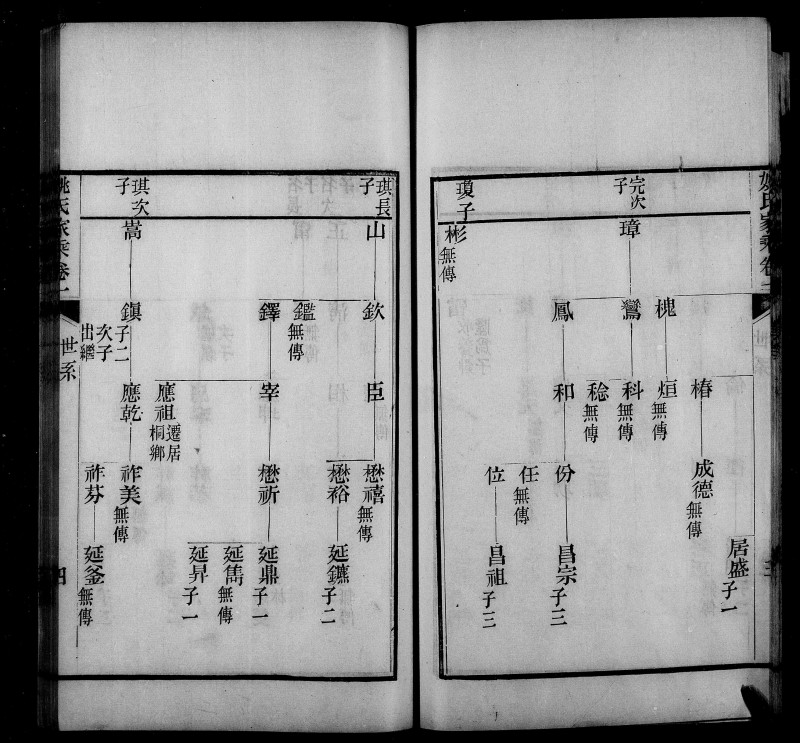 姚氏家乘卷一
世系
三
居盛子一
成德無傳
椿
烜無傳
槐
完次子
璋
鸞
科無傳
稔無傳
鳳
和
份
昌宗子三
任無傳
位
昌祖子三
瓊子
彬無傳
琪長子
山
欽
臣
懋禧無傳
懋裕
延鑣子二
鑑無傳
鐸
宰
懋祈
延鼎子一
延雋無傳
延昇子一
應祖遷居桐鄉
琪次子
嵩
鎮子二
次子出繼
應乾
祚美無傳
祚芬
延釜無傳
姚氏家乘卷一
世系
四